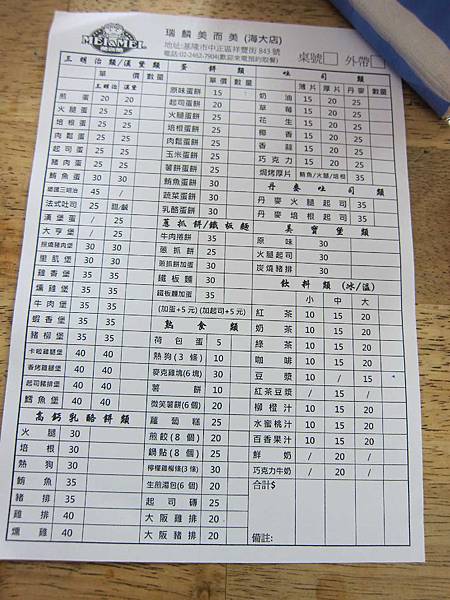 MEI&MEI
瑞麟美而美 (海大店)
地址:基隆市中正區祥豐街 843 號
電話:02-2462-7904(歡迎來電預約取餐)
桌號□ 外帶□
三明治類/漢堡類
單價 數量
三明治 漢堡
煎蛋 20 20
火腿蛋 25 25
培根蛋 25 25
肉鬆蛋 25 25
起司蛋 25 25
豬肉蛋 25 25
鮪魚蛋 30 30
總匯三明治 45 /
法式吐司 25 甜/鹹
漢堡蛋 / 25
大亨堡 / 25
豬肉堡 30 30
里肌堡 30 30
雞香堡 35 35
燻雞堡 35 35
牛肉堡 35 35
蝦香堡 35 35
豬柳堡 35 35
卡啦雞腿堡 40 40
香烤雞腿堡 40 40
起司豬排堡 40 40
鱈魚堡 40 40
高鈣乳酪餅類
火腿 30
培根 30
熱狗 30
鮪魚 35
豬排 35
雞排 40
燻雞 40
蛋餅類
單價 數量
原味蛋餅 15
起司蛋餅 20
火腿蛋餅 25
培根蛋餅 25
肉鬆蛋餅 25
玉米蛋餅 25
薯餅蛋餅 25
鮪魚蛋餅 30
蔬菜蛋餅 30
乳酪蛋餅 30
蔥抓餅/鐵板麵
牛肉捲餅 35
蔥抓餅 25
蔥抓餅加蛋 30
鐵板麵 30
鐵板麵加蛋 35
(加蛋+5 元) (加起司+5 元)
熟食類
荷包蛋 5
熱狗(3 條) 10
麥克雞塊(6 塊) 30
薯餅 10
微笑薯餅(6 個) 20
蘿蔔糕 25
煎餃(8 個) 25
鍋貼(8 個) 25
檸檬雞柳條(3 條) 30
生煎湯包(6 個) 20
起司磚 25
大阪雞排 20
大阪豬排 20
吐司類
薄片 厚片 丹麥 數量
奶油 15 20 25
草莓 15 20 25
花生 15 20 25
椰香 15 20 25
香蒜 15 20 25
巧克力 15 20 25
焗烤厚片 鮪魚/火腿/培根 35
丹麥吐司類
丹麥火腿起司 35
丹麥培根起司 35
美寶堡類
原味 30
火腿起司 30
炭燒豬排 30
飲料類 (冰/溫)
小 中 大
紅茶 10 15 20
奶茶 10 15 20
綠茶 10 15 20
咖啡 10 15 20
豆漿 10 / 15
紅茶豆漿 / / 15
柳橙汁 10 15 20
水蜜桃汁 10 15 20
百香果汁 10 15 20
鮮奶 / 20 /
巧克力牛奶 / 20 /
合計$
備註: